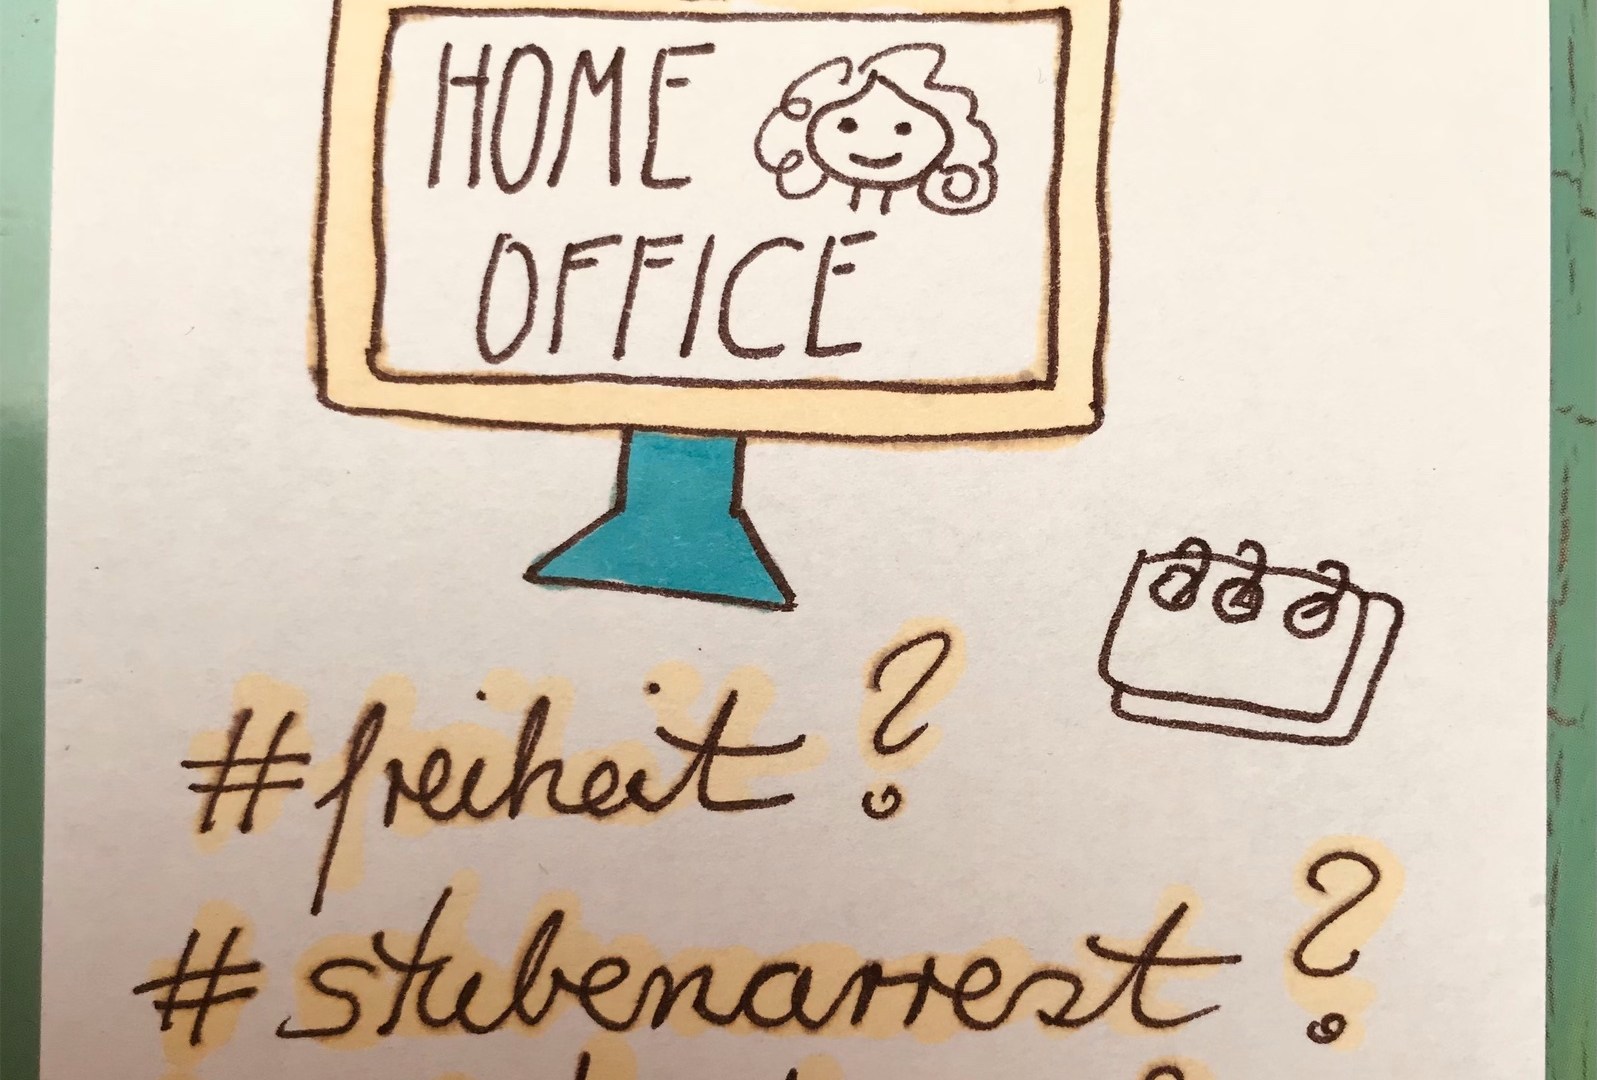 HOME
OFFICE
#freiheit?
#stubenarrest?